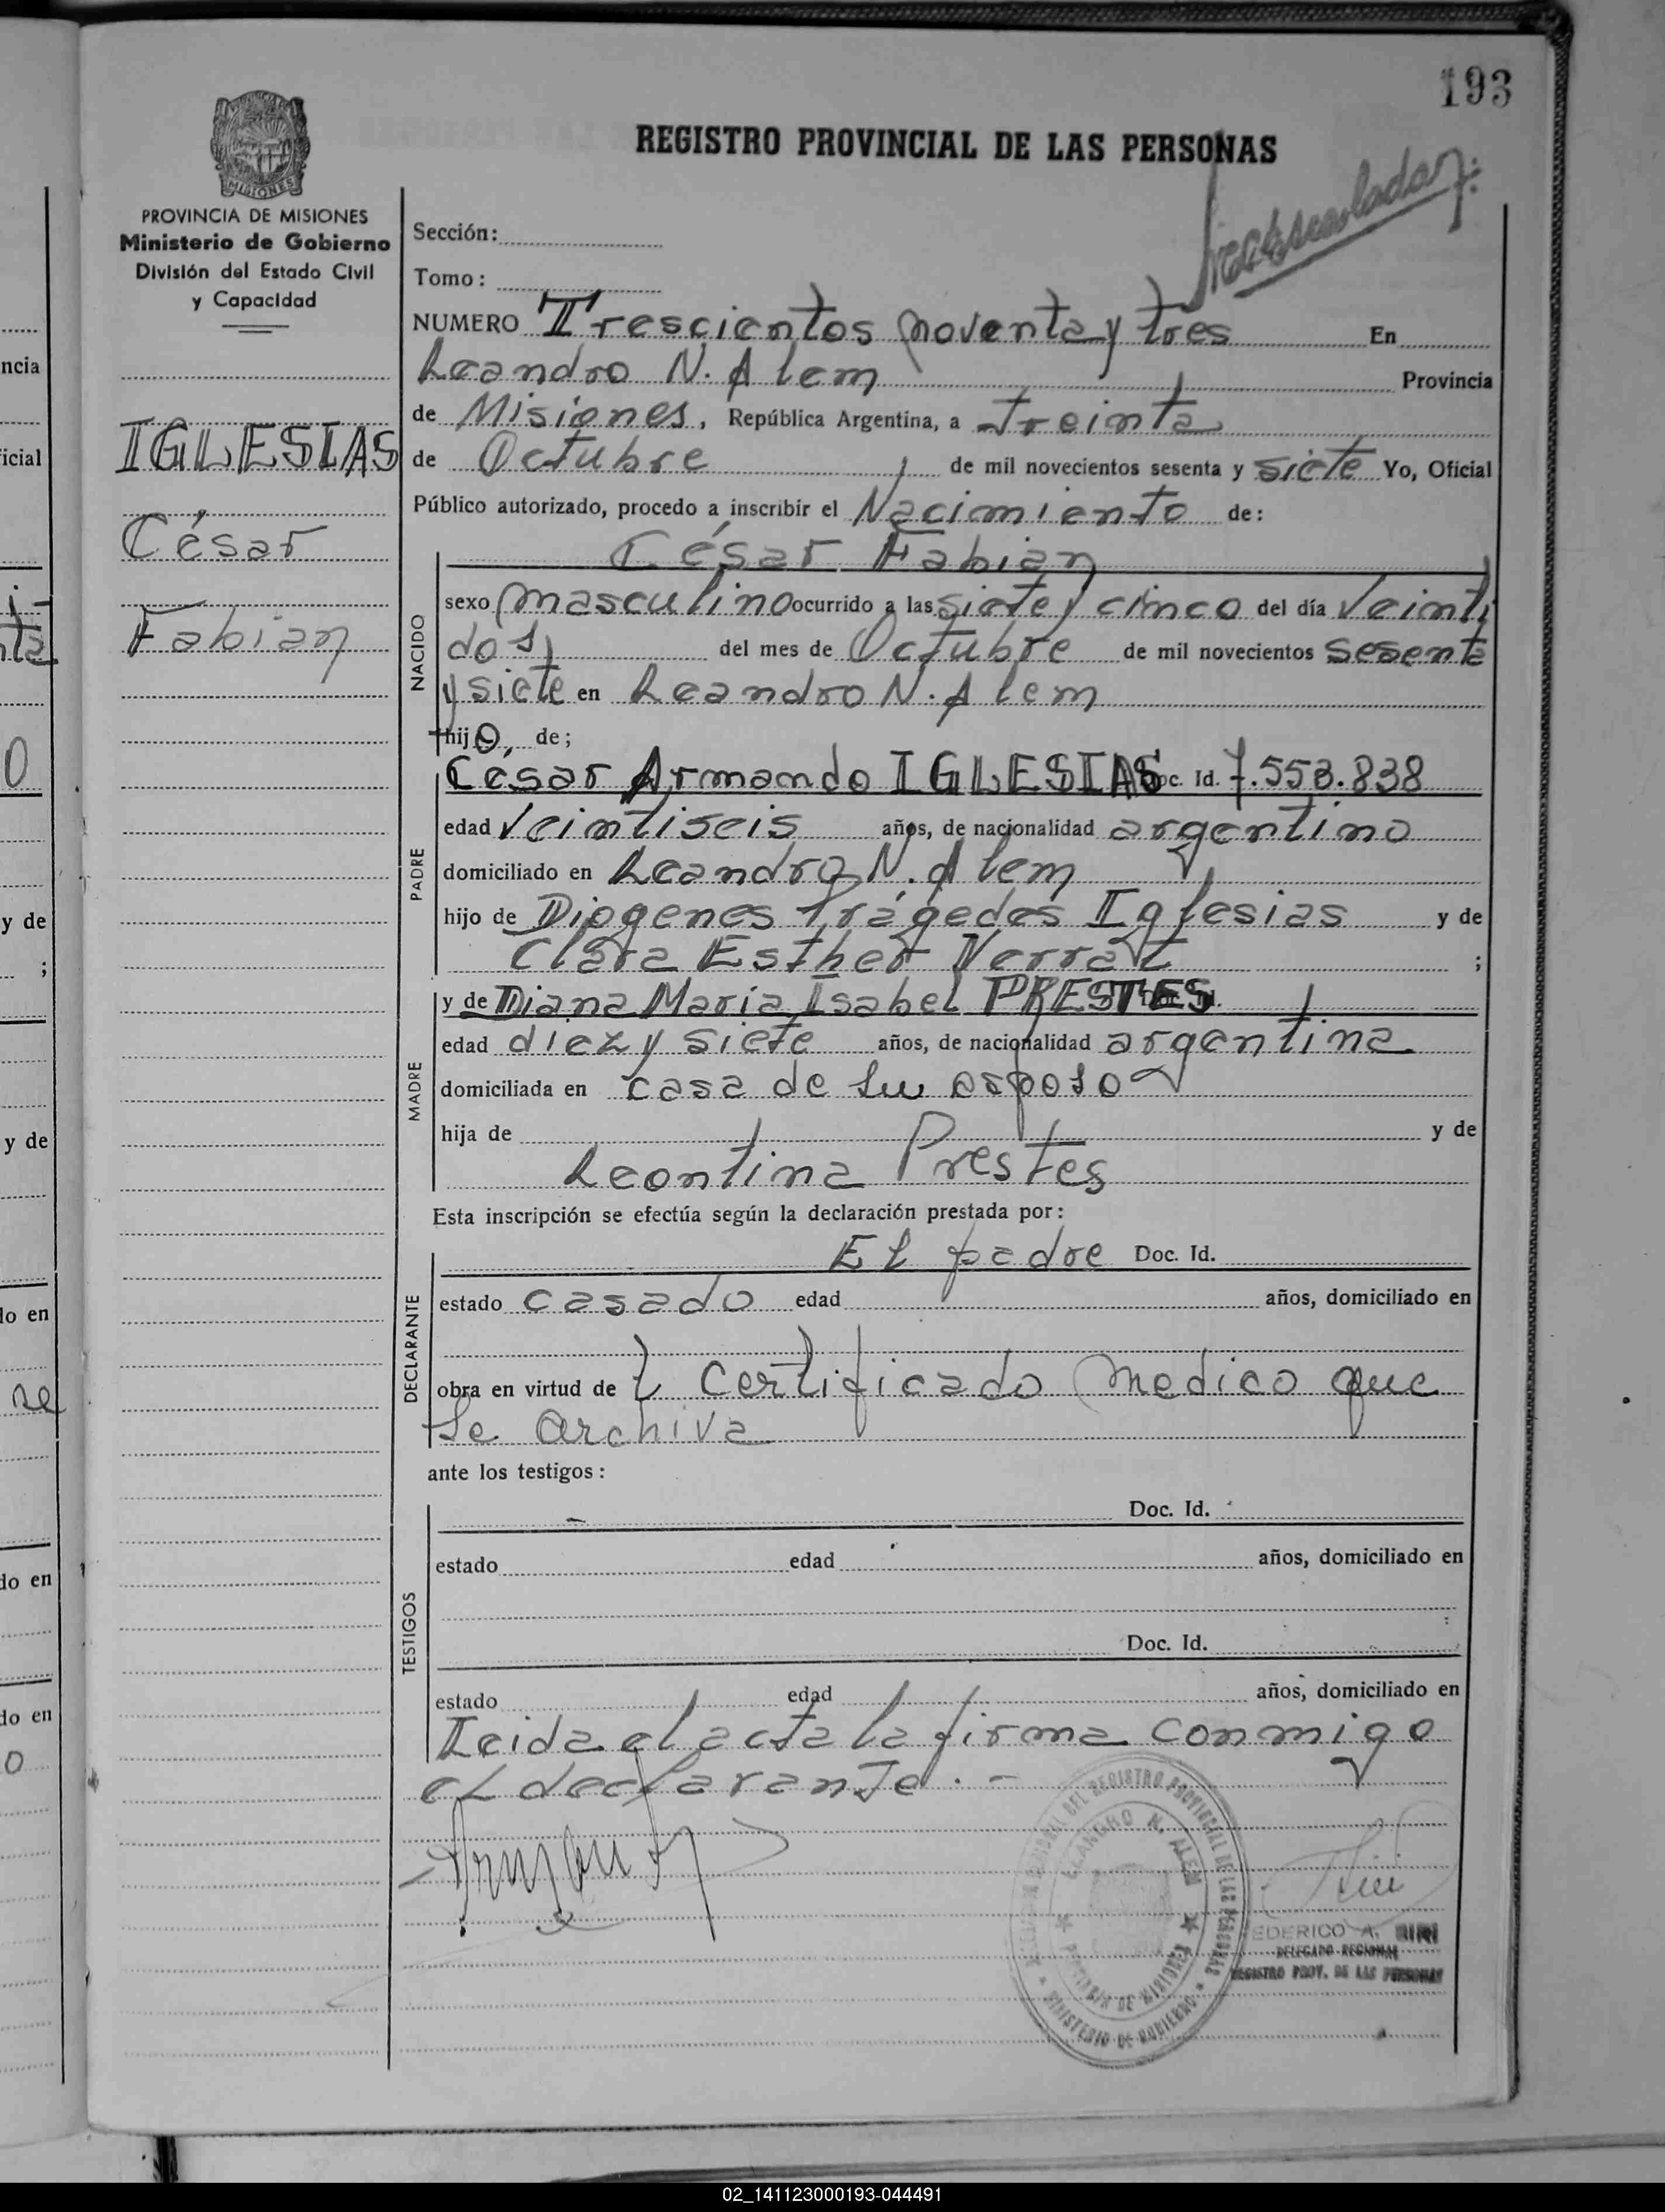 193
REGISTRO PROVINCIAL DE LAS PERSONAS
MISIONES
PROVINCIA DE MISIONES
Ministerio de Gobierno
División del Estado Civil
y Capacidad
IGLESIAS
César
Fabian
Sección:
Tomo:
NUMERO Trescientos noventa y tres En
Leandro N. Alem Provincia
de Misiones, República Argentina, a Treinta
de Octubre de mil novecientos sesenta y siete Yo, Oficial
Público autorizado, procedo a inscribir el Nacimiento de:
César Fabian
NACIDO
sexo masculino ocurrido a las siete y cinco del día Veinti
dos del mes de Octubre de mil novecientos sesenta
y siete en Leandro N. Alem
hijo de;
César Armando IGLESIAS Doc. Id. 7.553.838
PADRE
edad Veintiseis años, de nacionalidad argentino
domiciliado en Leandro N. Alem
hijo de Diogenes Trágedes Iglesias y de
Clara Esther Verrat ;
y de Diana Maria Isabel PRESTES Doc. Id.
MADRE
edad diez y siete años, de nacionalidad argentina
domiciliada en casa de su esposo
hija de y de
Leontina Prestes
Esta inscripción se efectúa según la declaración prestada por:
El padre Doc. Id.
DECLARANTE
estado casado edad años, domiciliado en
obra en virtud de certificado medico que
se archiva
ante los testigos:
Doc. Id.
TESTIGOS
estado edad años, domiciliado en
Doc. Id.
estado edad años, domiciliado en
Leida el acta la firma conmigo
el declarante.-
DEL REGISTRO PROVINCIAL DE LAS PERSONAS
LEANDRO N. ALEM
PROVINCIA DE MISIONES
MINISTERIO DE GOBIERNO
EDERICO A.
DELEGADO REGIONAL
REGISTRO PROV. DE LAS PERSONAS
ncia
icial
y de
;
y de
do en
se
do en
do en
o
02_141123000193-044491